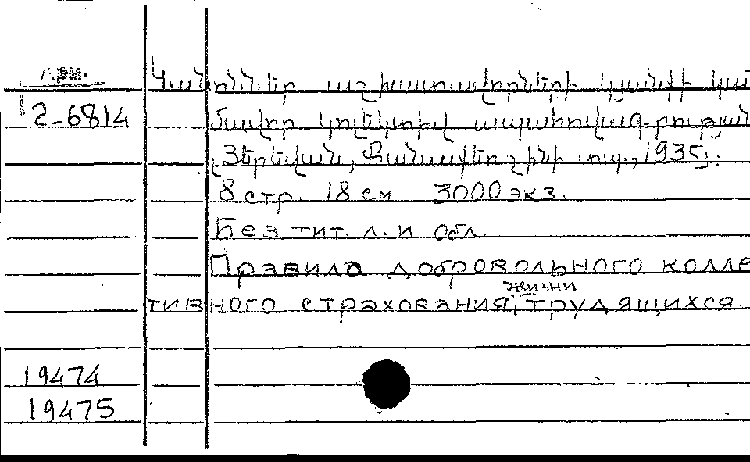 Арм.
Կանոններ աշխատավորների կյանքի կա
2-6814
մավոր կոլեկտիվ ապահովագրության
Յերեվան, 1935.
8 стр. 18 см 3000 экз.
Без тит. л. и обл.
Правила добровольного колле
жизни
тивного страхования трудящихся
19474
19475